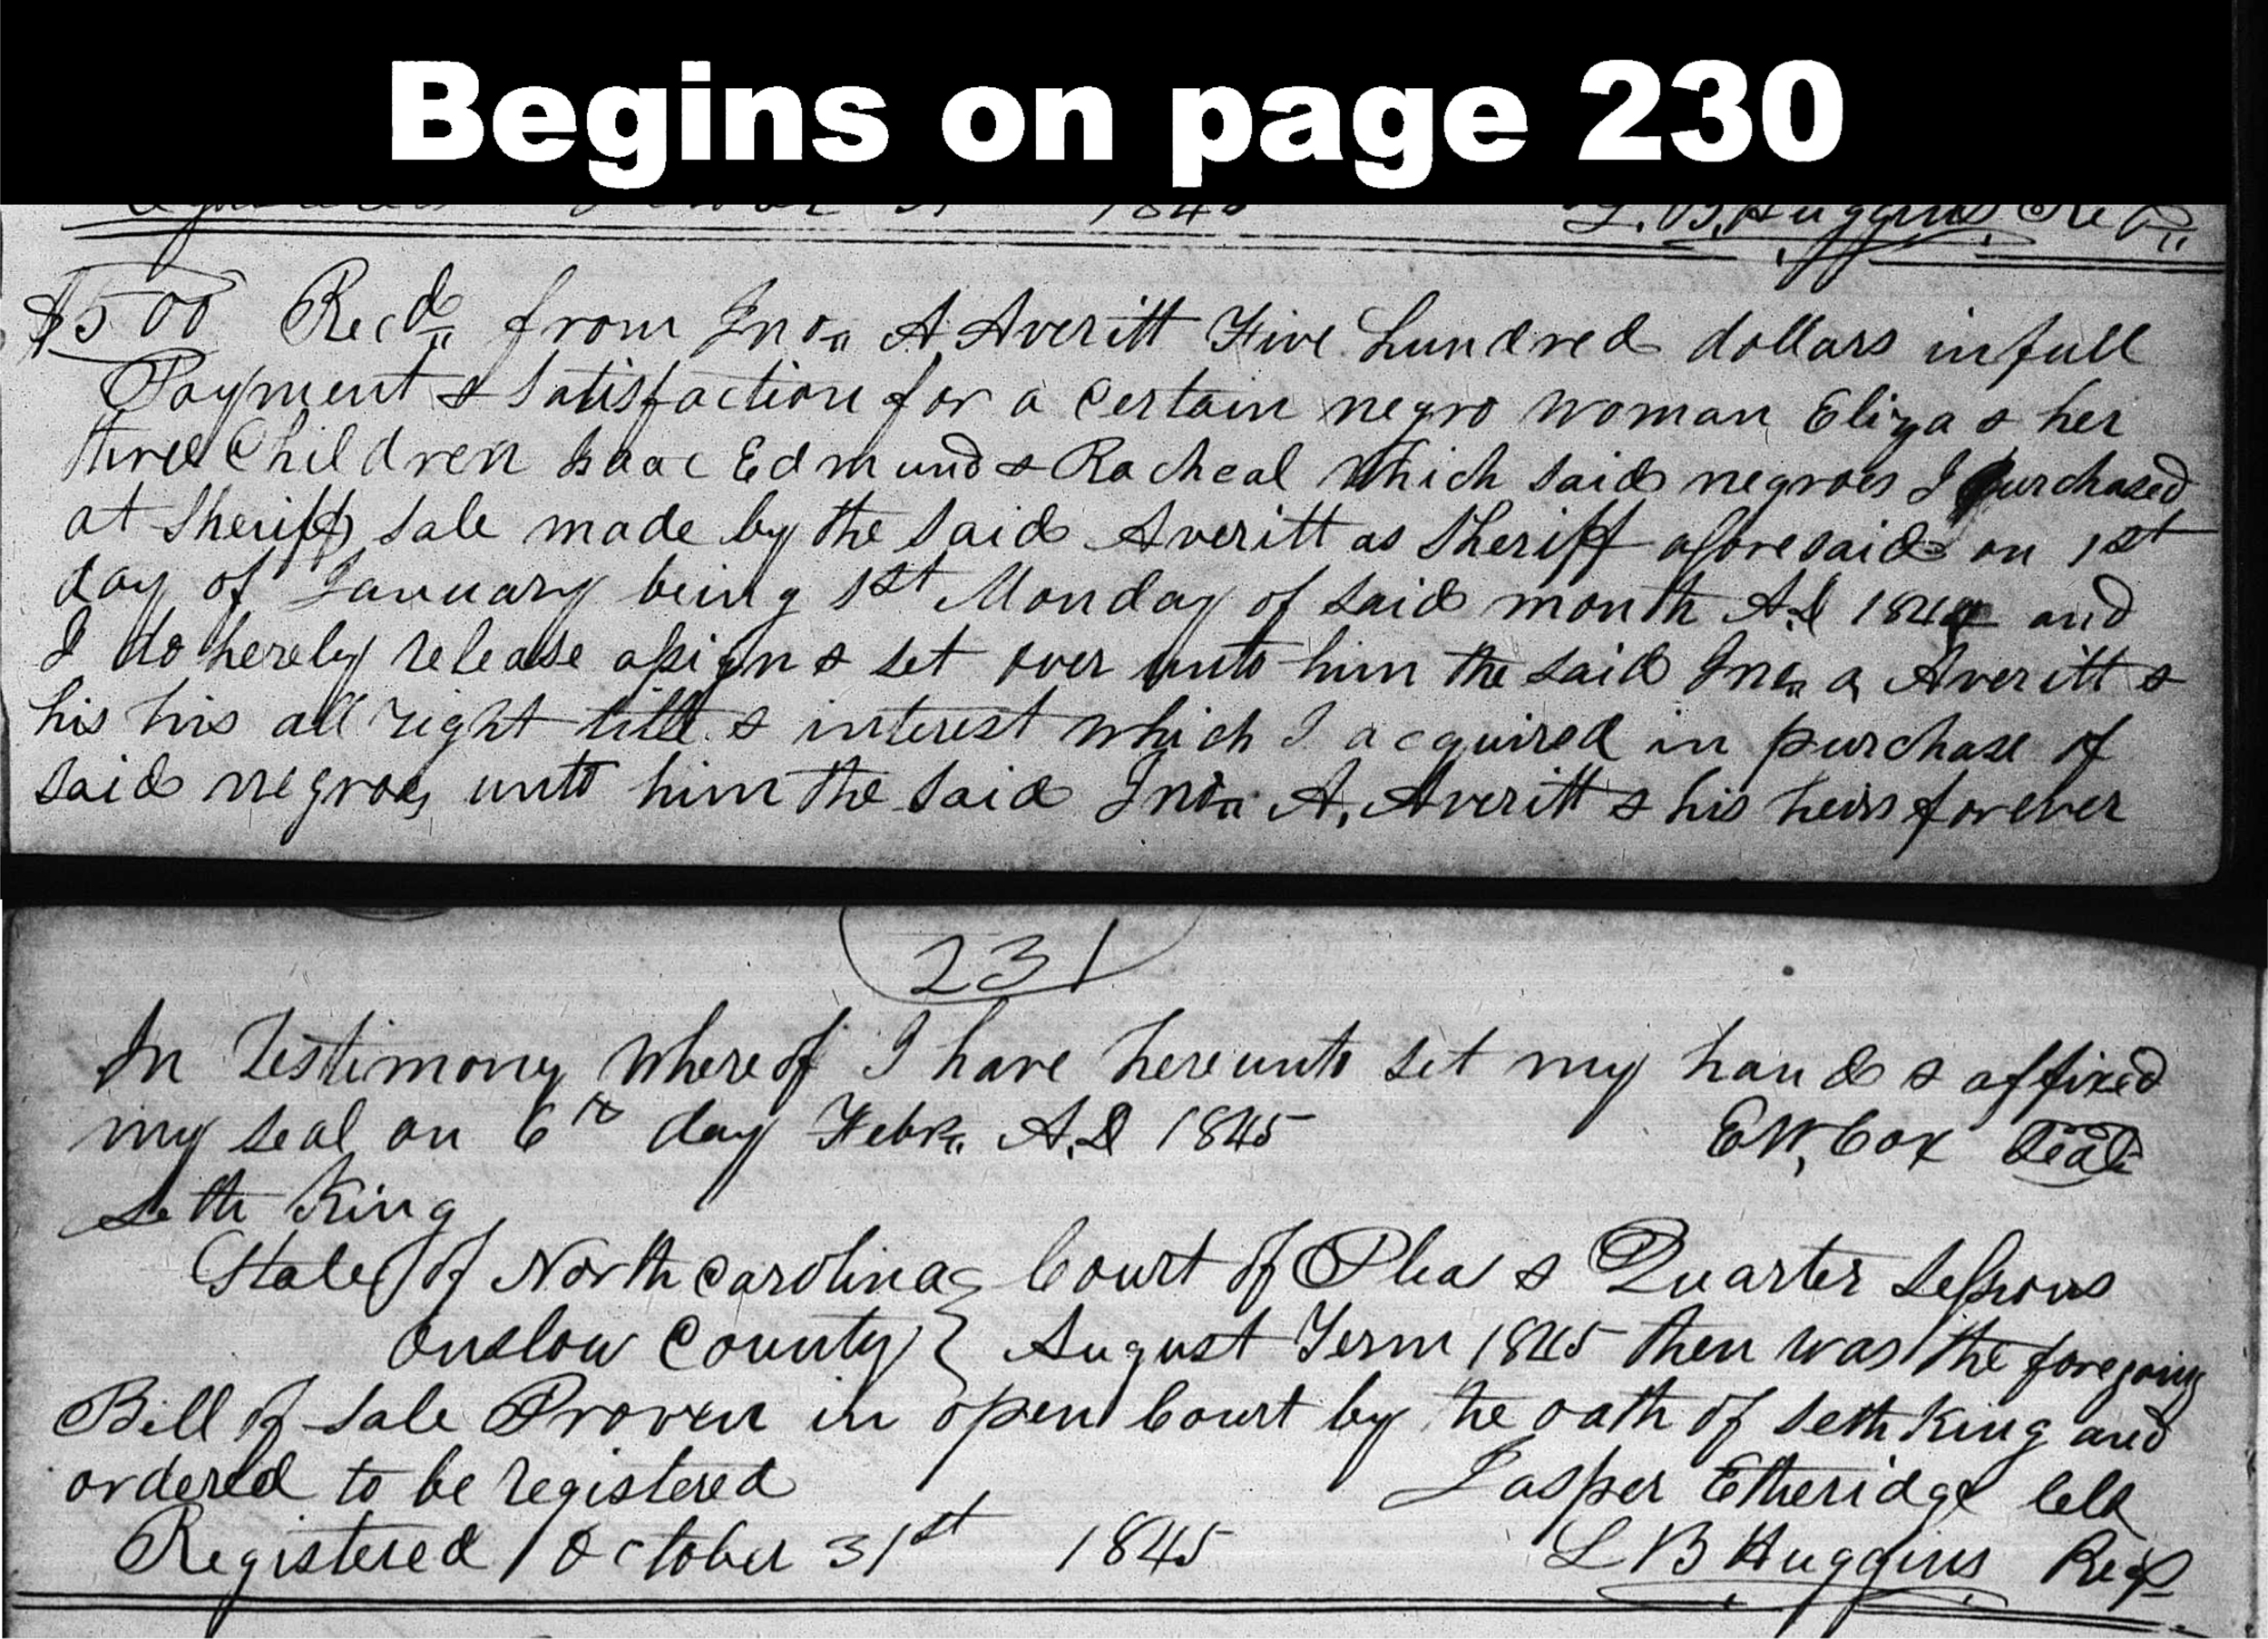 Begins on page 230
1845 L. B. Huggins Reg
$500 Recd from Jno A Averitt Five hundred dollars in full
Payment & Satisfaction for a certain negro woman Eliza & her
three Children Isaac Edmund & Racheal which said negroes I purchased
at Sheriffs Sale made by the said Averitt as Sheriff aforesaid on 1st
day of January being 1st Monday of said month A.D 1844 and
I do hereby release assign & set over unto him the said Jno a Averitt &
his his all right title & interest which I acquired in purchase of
said negroes unto him the said Jno A. Averitt & his heirs forever
231
In Testimony whereof I have hereunto set my hand & affixed
my seal on 6th day Febr. A.D 1845 E W, Cox Seal
Seth King
State of North Carolina } Court of Pleas & Quarter Sessions
Onslow County } August Term 1845 then was the foregoing
Bill of Sale Proven in open Court by he oath of Seth King and
ordered to be registered Jasper Etheridge Clk
Registered October 31st 1845 L B Huggins Reg